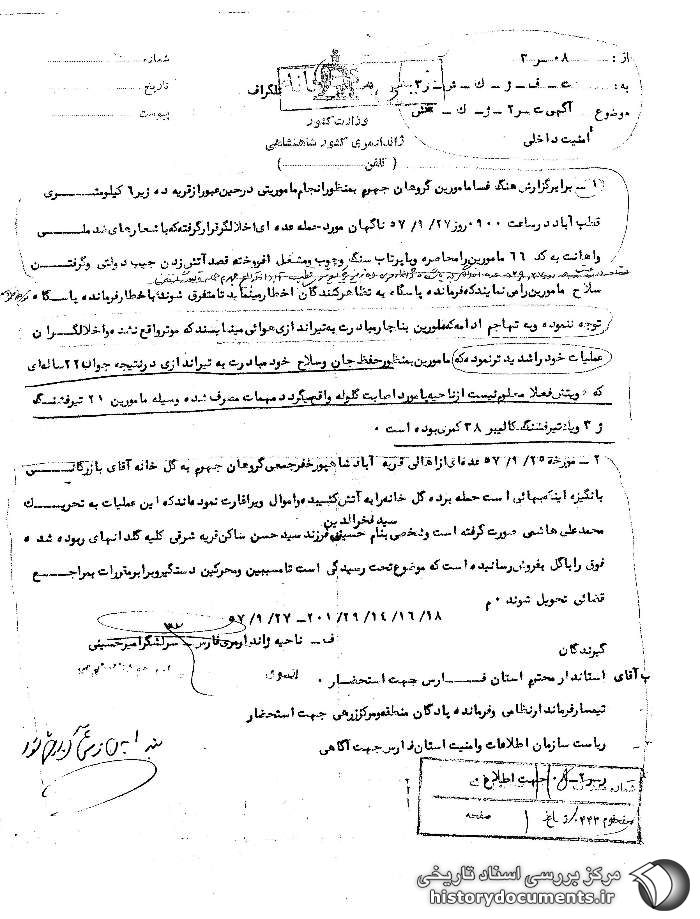 از : ۰۸ سر ۲
شماره
به :
تاریخ
تلگراف
موضوع
پیوست
امنیت داخلی
وزارت کشور
ژاندارمری کشور شاهنشاهی
( تلفن )
۱ – برابر گزارش هنگ فسا مامورین گروهان جهرم بمنظور انجام ماموریتی در حین عبور از قریه ده زیر ۶ کیلومتری
قطب آباد در ساعت ۰۹۰۰ روز ۵۷/۹/۲۷ ناگهان مورد حمله عده ای اخلالگر قرار گرفته که با شعارهای ضد ملی
و اهانت به کد ۶۶ مامورین را محاصره و با پرتاب سنگ و چوب و مشعل افروخته قصد آتش زدن جیپ دولتی و گرفتن
سلاح مامورین را می نمایند که فرمانده پاسگاه به تظاهرکنندگان اخطار مینماید تا متفرق شوند با خطار فرمانده پاسگاه
توجه ننموده و به تهاجم ادامه که مامورین بناچار مبادرت به تیراندازی هوائی مینمایند که موثر واقع نشده و اخلالگران
عملیات خود را شدیدتر نموده که مامورین بمنظور حفظ جان و سلاح خود مبادرت به تیراندازی در نتیجه جوان ۲۲ ساله ای
که هویتش فعلا معلوم نیست از ناحیه پا مورد اصابت گلوله واقع میگردد مهمات مصرف شده وسیله مامورین ۲۱ تیر فشنگ
ژ ۳ و یازده تیر فشنگ کالیبر ۳۸ کمری بوده است ۰
۲ – مورخه ۵۷/۹/۲۵ عده ای از اهالی قریه آباد شاهپور خفر جمعی گروهان جهرم به گل خانه آقای بازرگانی
بانگیزه اینکه بهائی است حمله برده گل خانه را به آتش کشیده و اموال ویرا غارت نموده اند که این عملیات به تحریک
سید فخرالدین
محمد علی هاشمی صورت گرفته است و شخصی بنام حسینی فرزند سید حسن ساکن قریه شرقی کلیه گلدانهای ربوده شده
فوق را با گل بفروش رسانیده است که موضوع تحت رسیدگی است تا مسببین و محرکین دستگیر و برابر مقررات بمراجع
قضائی تحویل شوند ۰ م
۲۰۱/۲۹/۱۴/۱۶/۱۸ – ۵۷/۹/۲۷
ف – ناحیه ژاندارمری فارس – سرلشگر امیر حسینی
گیرندگان
آقای استاندار محترم استان فارس جهت استحضار ۰
تیمسار فرماندار نظامی و فرمانده پادگان منطقه و مرکز زرهی جهت استحضار
ریاست سازمان اطلاعات و امنیت استان فارس جهت آگاهی
جهت اطلاع
شماره
صفحه
مرکز بررسی اسناد تاریخی
historydocuments.ir